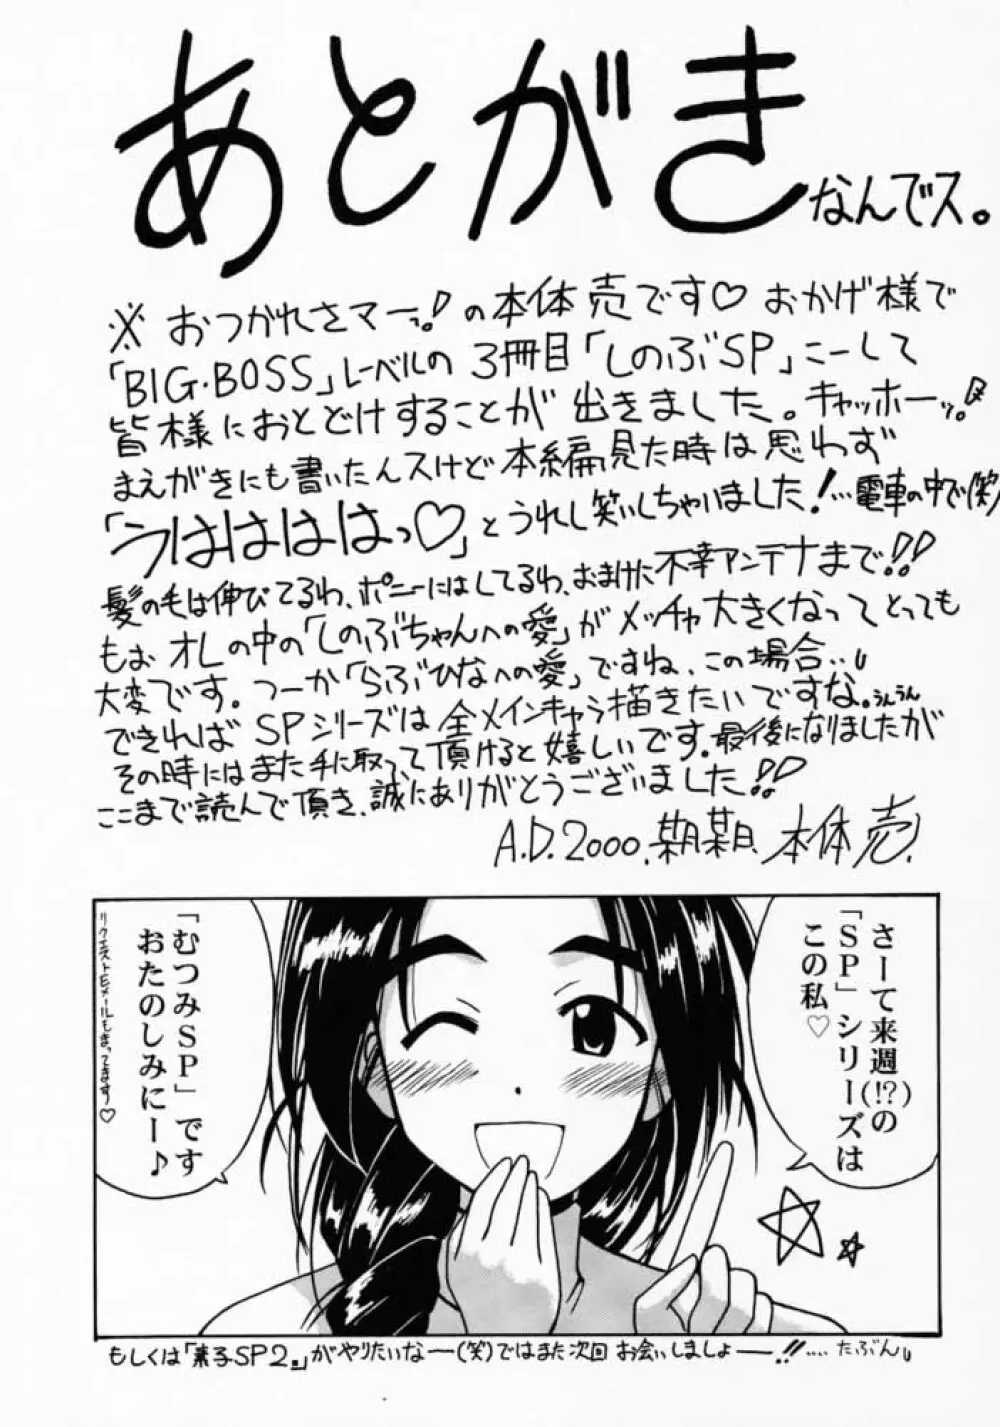 あとがきなんでス。
※おつかれさマーっ!の本体売です♡おかげ様で
「BIG・BOSS」レーベルの3冊目「しのぶSP」こーして
皆様におとどけすることが出きました。キャッホーッ!
まえがきにも書いたんスけど本編見た時は思わず
「うはははは​っ♡」とうれし笑いしちゃいました!…電車の中で(笑)
髪の毛は伸びてるわ、ポニーにはしてるわ、おまけに不幸アンテナまで!!
もおオレの中の「しのぶちゃんへの愛」がメッチャ大きくなってとっても
大変です。つーか「らぶひなへの愛」ですね、この場合…。
できればSPシリーズは全メインキャラ描きたいですな。うんうん
その時にはまた手に取って頂けると嬉しいです。最後になりましたが
ここまで読んで頂き、誠にありがとうございました!!
A.D.2000.某月某日、本体売.
さーて来週(!?)の
「SP」シリーズは
この私♡
「むつみSP」です
おたのしみにー♪
リクエストEメールもまってます♡
もしくは「素子SP2。」がやりたいなー(笑)ではまた次回お会いしましょー!!‥‥たぶん。